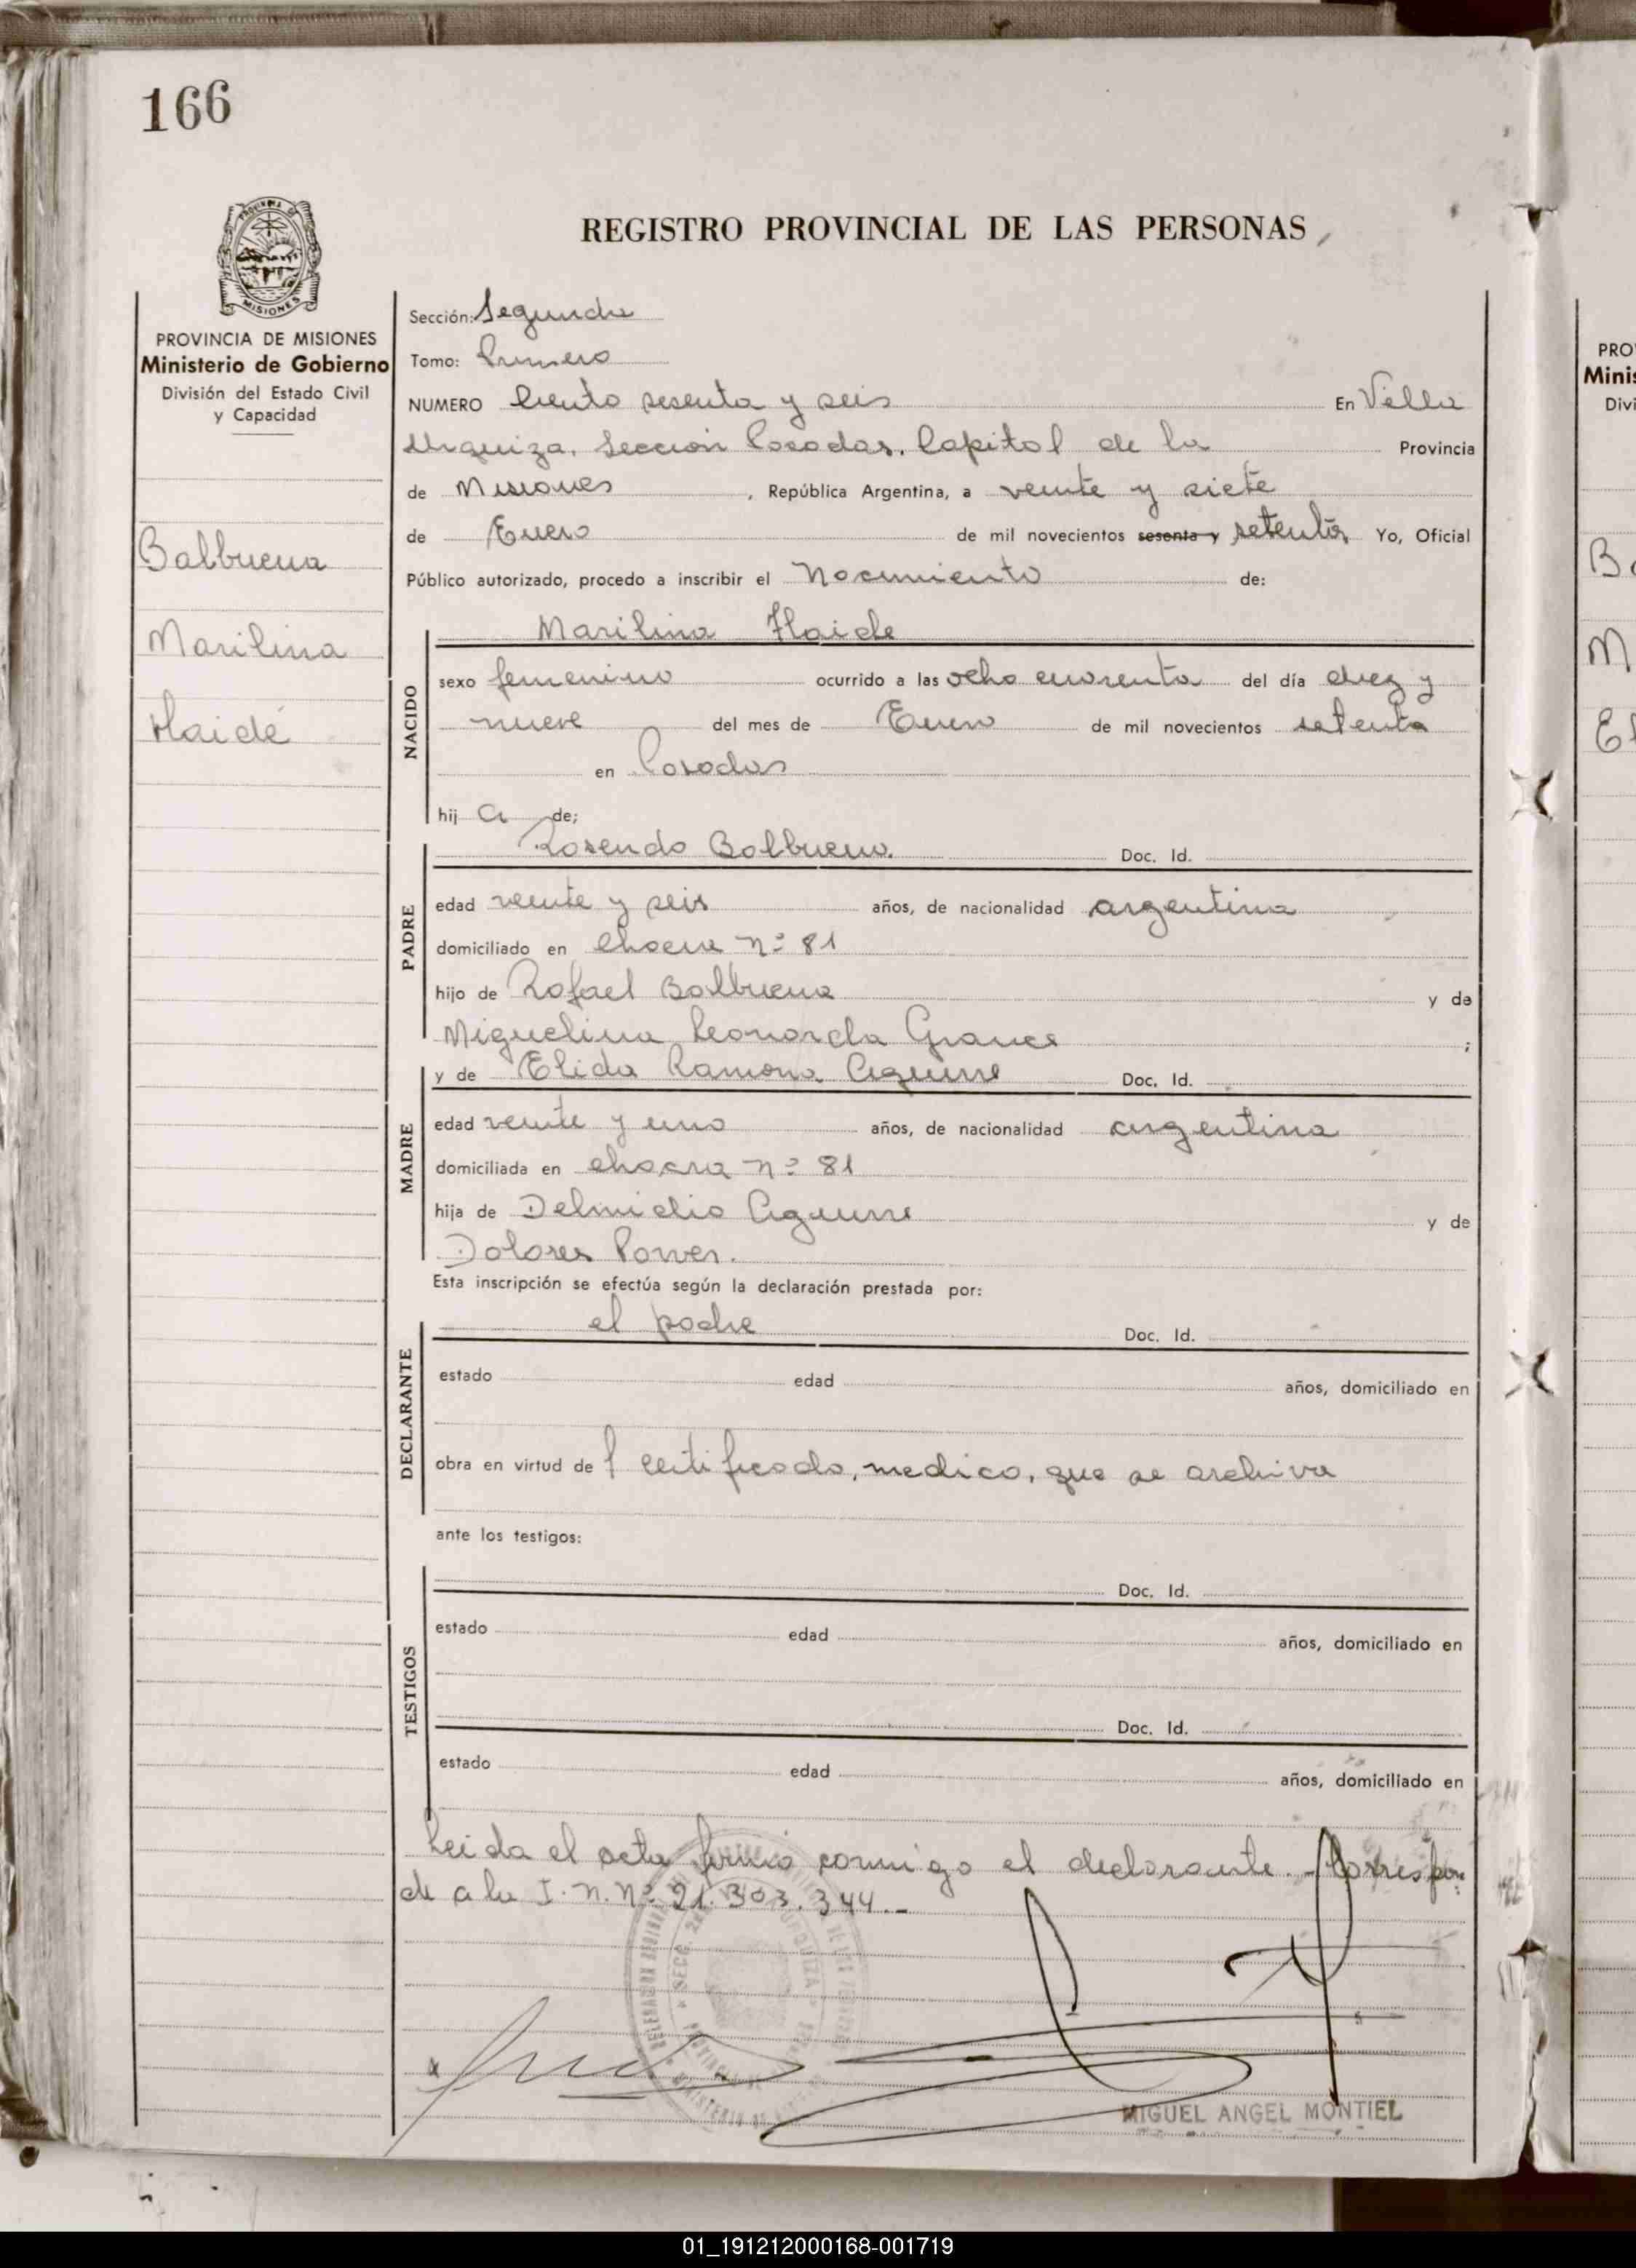 166
PROVINCIA DE
MISIONES
REGISTRO PROVINCIAL DE LAS PERSONAS
PROVINCIA DE MISIONES
Ministerio de Gobierno
División del Estado Civil
y Capacidad
Balbuena
Marilina
Haidé
Sección: Segunda
Tomo: Primero
NUMERO Ciento sesenta y seis En Villa
Urquiza, Sección Posadas, Capital de la Provincia
de Misiones, República Argentina, a veinte y siete
de Enero de mil novecientos sesenta y setenta, Yo, Oficial
Público autorizado, procedo a inscribir el Nacimiento de:
NACIDO
Marilina Haide
sexo femenino ocurrido a las ocho cuarenta del día diez y
nueve del mes de Enero de mil novecientos setenta
en Posadas
hij a de;
PADRE
Rosendo Balbuena. Doc. Id.
edad veinte y seis años, de nacionalidad argentina
domiciliado en chacra nº 81
hijo de Rafael Balbuena y de
Miguelina Leonarda Grance ;
MADRE
y de Elida Ramona Aguirre Doc. Id.
edad veinte y uno años, de nacionalidad argentina
domiciliada en chacra nº 81
hija de Delmidio Aguirre y de
Dolores
Esta inscripción se efectúa según la declaración prestada por:
DECLARANTE
el padre Doc. Id.
estado edad años, domiciliado en
obra en virtud de 1 certificado, medico, que se archiva
ante los testigos:
TESTIGOS
Doc. Id.
estado edad años, domiciliado en
Doc. Id.
estado edad años, domiciliado en
Leida el acta firmó conmigo el declarante. - Correspon:
de a la I. n. Nº 21.303.344.-
MIGUEL ANGEL MONTIEL
PRO
Minis
Divi
Ba
M
El
01_191212000168-001719